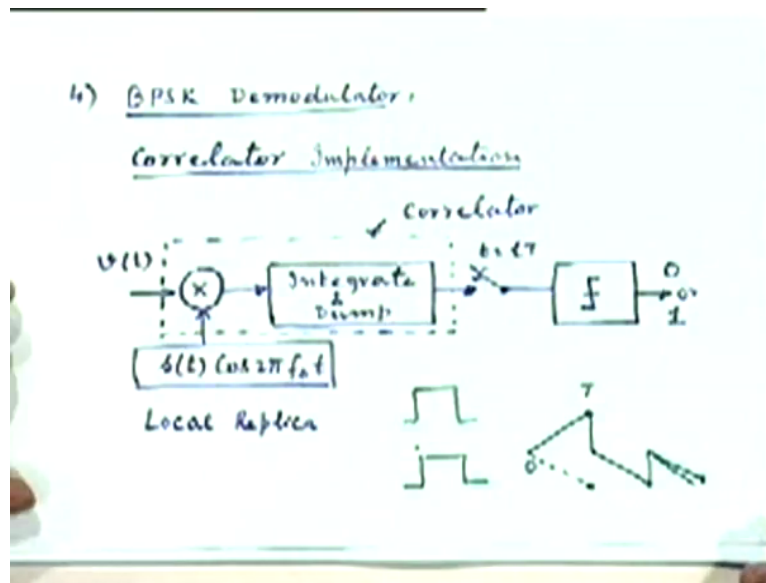 4) BPSK Demodulator,
Correlator Implementation
Correlator
v(t)
×
Integrate
&
Dump
t = lT
0
or
1
s(t) Cos 2π f₀ t
Local Replica
T
0